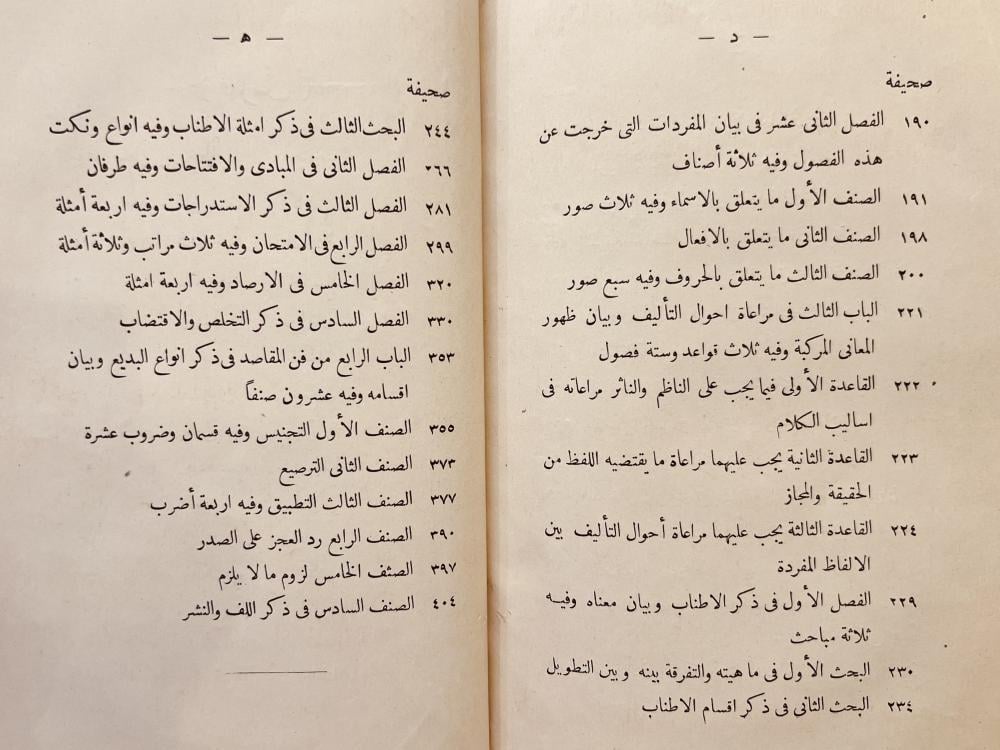 — د —
صحيفة
١٩٠ الفصل الثانى عشر فى بيان المفردات التى خرجت عن
هذه الفصول وفيه ثلاثة أصناف
١٩١ الصنف الأول ما يتعلق بالاسماء وفيه ثلاث صور
١٩٨ الصنف الثانى ما يتعلق بالافعال
٢٠٠ الصنف الثالث ما يتعلق بالحروف وفيه سبع صور
٢٢١ الباب الثالث فى مراعاة احوال التأليف وبيان ظهور
المعانى المركبة وفيه ثلاث قواعد وستة فصول
٢٢٢ القاعدة الأولى فيما يجب على الناظم والناثر مراعاته فى
اساليب الكلام
٢٢٣ القاعدة الثانية يجب عليهما مراعاة ما يقتضيه اللفظ من
الحقيقة والمجاز
٢٢٤ القاعدة الثالثة يجب عليهما مراعاة أحوال التأليف بين
الالفاظ المفردة
٢٢٩ الفصل الأول فى ذكر الاطناب وبيان معناه وفيه
ثلاثة مباحث
٢٣٠ البحث الأول فى ما هيته والتفرقة بينه وبين التطويل
٢٣٤ البحث الثانى فى ذكر اقسام الاطناب
— ه —
صحيفة
٢٤٤ البحث الثالث فى ذكر امثلة الاطناب وفيه انواع ونكت
٢٦٦ الفصل الثانى فى المبادى والافتتاحات وفيه طرفان
٢٨١ الفصل الثالث فى ذكر الاستدراجات وفيه اربعة أمثلة
٢٩٩ الفصل الرابع فى الامتحان وفيه ثلاث مراتب وثلاثة أمثلة
٣٢٠ الفصل الخامس فى الارصاد وفيه اربعة امثلة
٣٣٠ الفصل السادس فى ذكر التخلص والاقتضاب
٣٥٣ الباب الرابع من فن المقاصد فى ذكر انواع البديع وبيان
اقسامه وفيه عشرون صنفاً
٣٥٥ الصنف الأول التجنيس وفيه قسمان وضروب عشرة
٣٧٣ الصنف الثانى الترصيع
٣٧٧ الصنف الثالث التطبيق وفيه اربعة أضرب
٣٩٠ الصنف الرابع رد العجز على الصدر
٣٩٧ الصنف الخامس لزوم ما لا يلزم
٤٠٤ الصنف السادس فى ذكر اللف والنشر